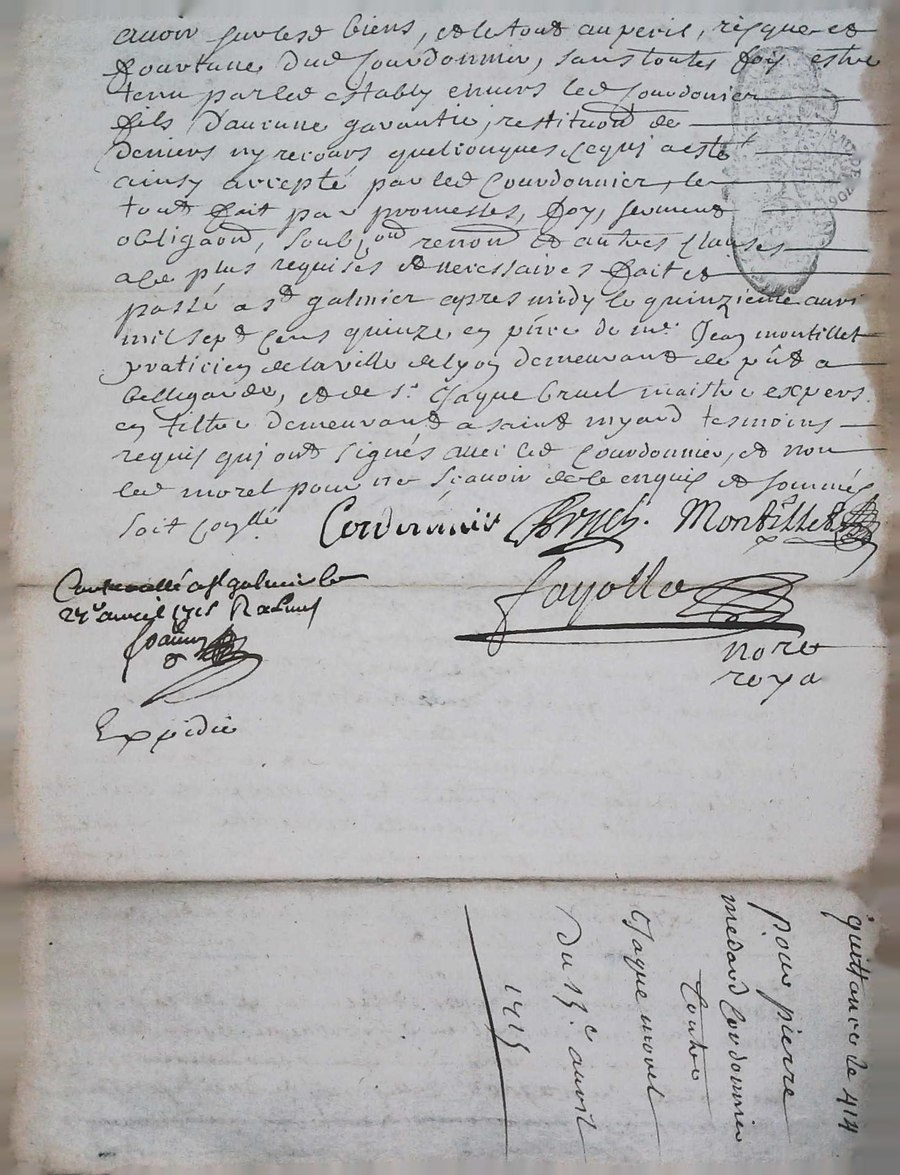 avoir sur lesd biens, et le tout au peril, risque et
fourtune dud Courdonnier, sans toutes fois estre
tenu par led estably envers led Courdonier
fils d'aucune garantie, restituon de
deniers ny recours quelconques ce qui a esté
ainsy accepté par led Courdonnier, le
tout fait par promesses, foy, serment
obligaon, soub, on renon et autres clauses
a ce plus requises et necessaires fait et
passé a st galmier apres midy le quinzieme avri
mil sept cens quinze en pñce de me Jean montillet
praticien de la ville de lyon demeurant de pñt a
bellegarde, et de sr Jaque bruel maistre expers
en tiltre demeurant a saint myard tesmoins
requis qui ont signés avec led Courdonnier, et non
led morel pour ne sçavoir de ce enquis et sommés
soit coñllé
Cordonnier Bruel. Montillet
fayolle
nore
roya
Controollé a st galmier le
27e avril 1715 R
Expidié
quittance de 414
pour pierre
medard Cordonnier
Contre
Jaque morel
Du 15.e avril
1715